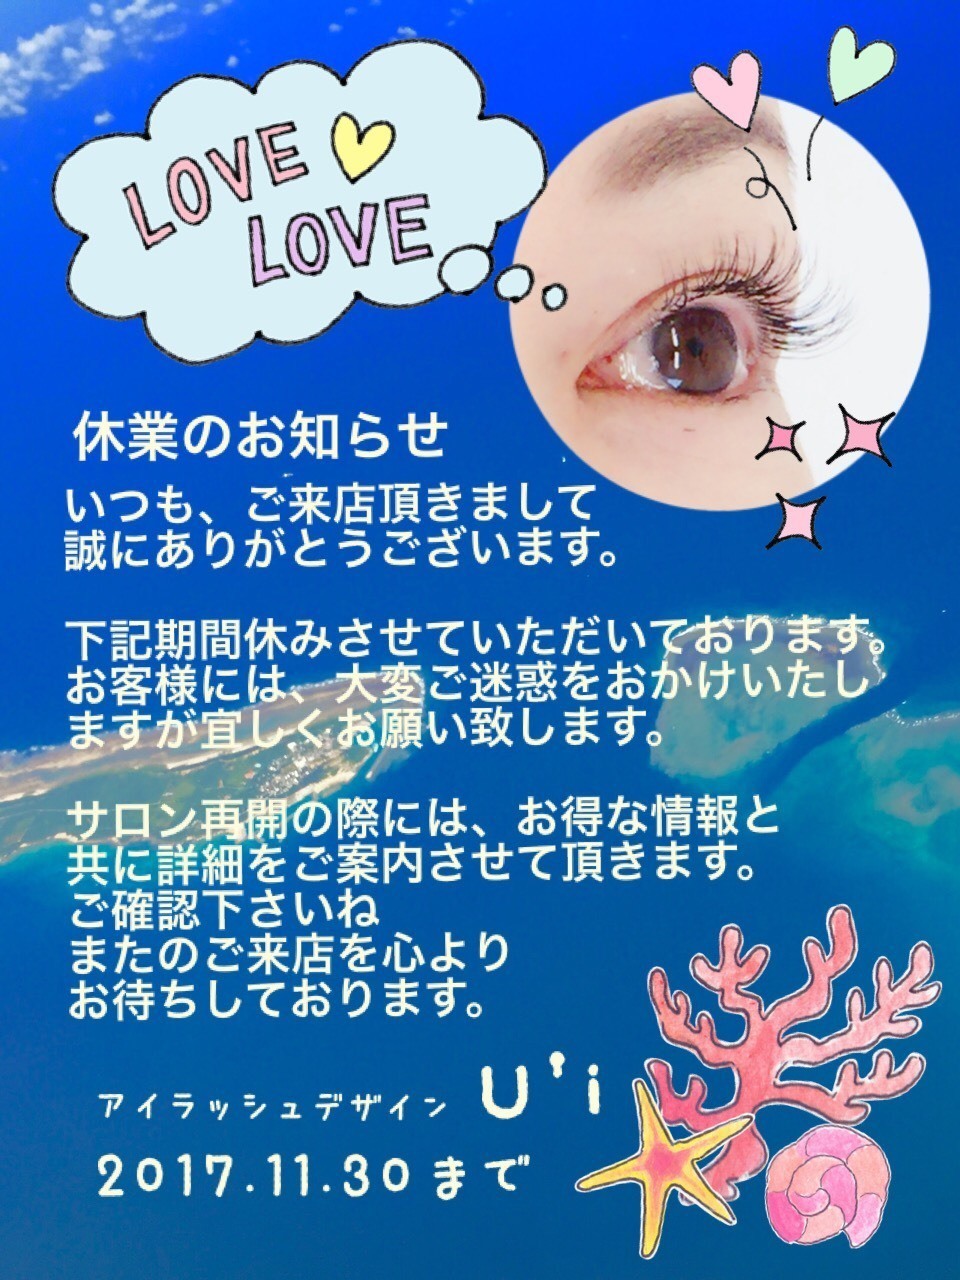 LOVE
LOVE
休業のお知らせ
いつも、ご来店頂きまして
誠にありがとうございます。
下記期間休みさせていただいております。
お客様には、大変ご迷惑をおかけいたし
ますが宜しくお願い致します。
サロン再開の際には、お得な情報と
共に詳細をご案内させて頂きます。
ご確認下さいね
またのご来店を心より
お待ちしております。
アイラッシュデザイン U'i
2017.11.30まで